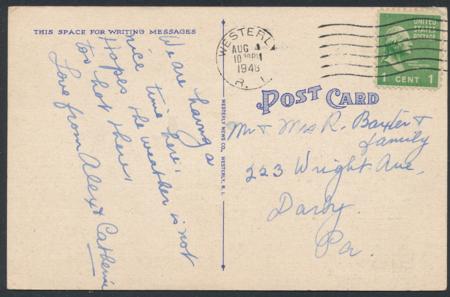 THIS SPACE FOR WRITING MESSAGES
We are having a
nice time here,
Hopes the weather is not
too hot there,
Love from Alex & Catherine
WESTERLY NEWS CO., WESTERLY, R. I.
WESTERLY
AUG 4
1948
R. I.
UNITED STATES
POSTAGE
1 CENT 1
POST CARD
Mr & Mrs R. Baxter &
family
223 Wright Ave,
Darby,
Pa.